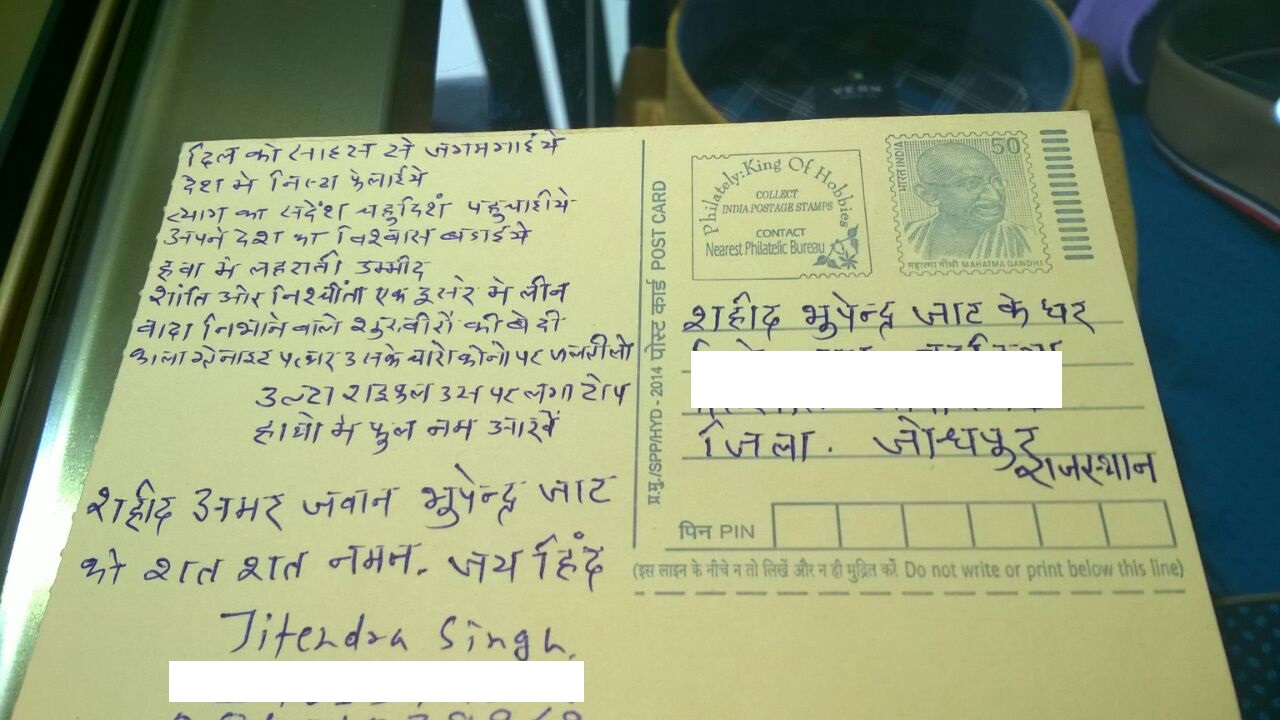 दिल को साहस से जगमगाईये
देश मे निष्ठा फैलाईये
त्याग का संदेश चहुदिशं पहुचाईये
अपने देश का विश्वास बडाईये
हवा मे लहराती उम्मीद
शांति और निश्चींता एक दुसरे मे लीन
वादा निभाने वाले शुरवीरों की बेदी
काला ग्रेनाइट पत्थर उसके चारो कोनो पर
उल्टा राइफल उस पर लगा टोप
हाथो मे फुल नम आखें
शहीद अमर जवान भुपेन्द्र जाट
को शत शत नमन. जय हिंद
Jitendra Singh.
प्र.मु./SPP/HYD - 2014 पोस्ट कार्ड POST CARD
Philately: King Of Hobbies
COLLECT
INDIA POSTAGE STAMPS
CONTACT
Nearest Philatelic Bureau
भारत INDIA
50
महात्मा गाँधी MAHATMA GANDHI
शहीद भुपेन्द्र जाट के घर
जिला. जोधपुर
राजस्थान
पिन PIN
(इस लाइन के नीचे न तो लिखें और न ही मुद्रित करें Do not write or print below this line)
VERN